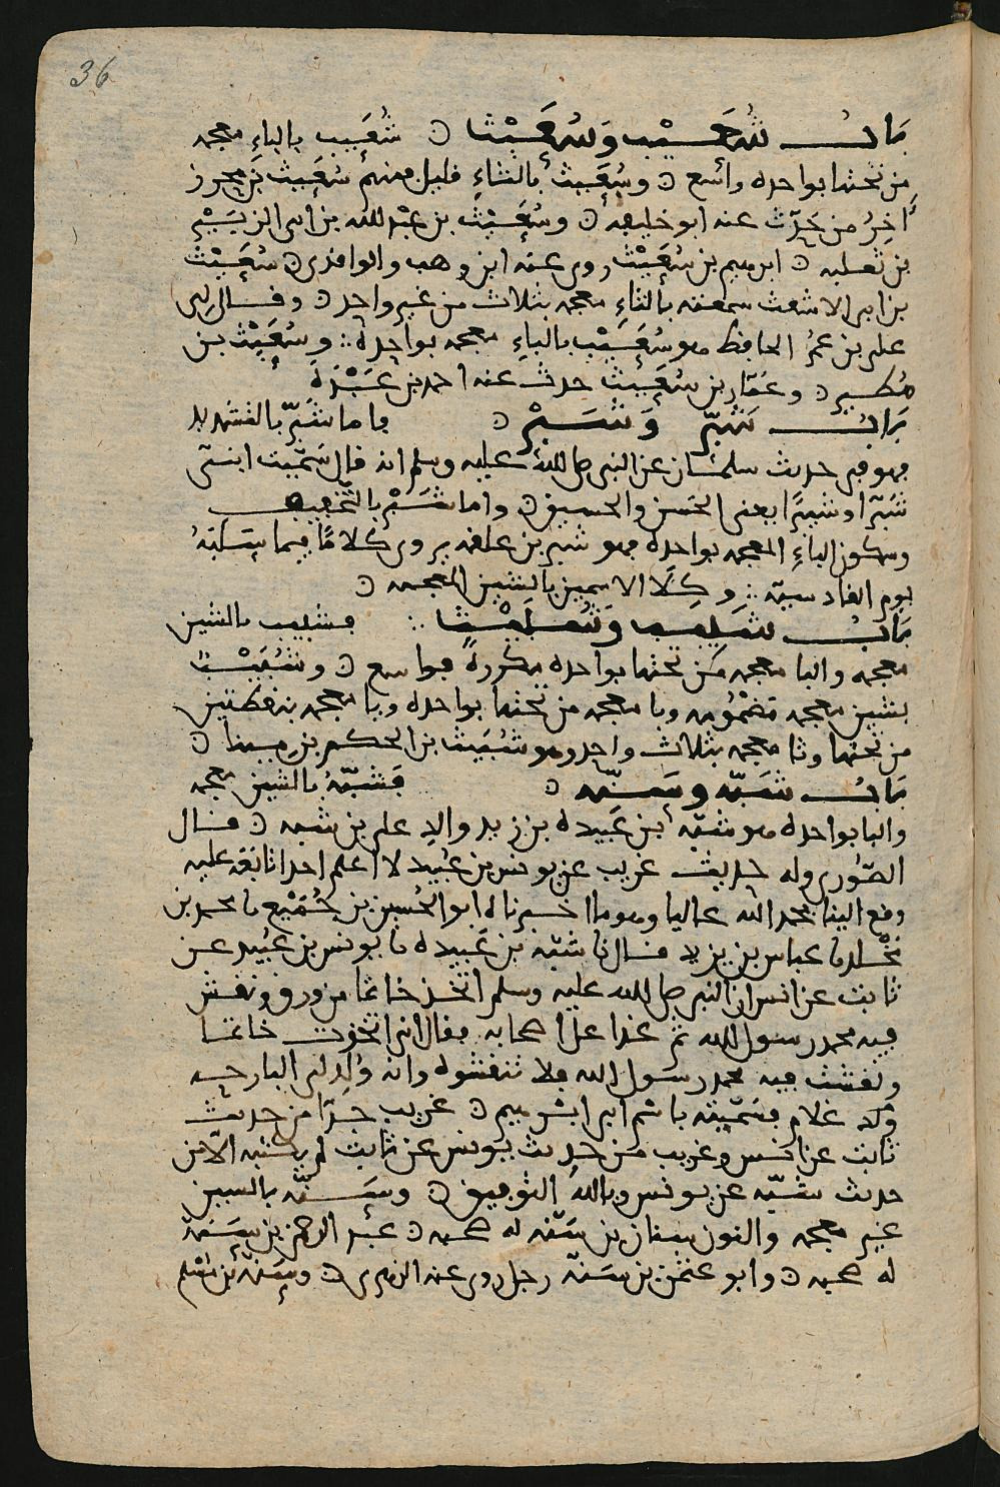 36
باب شُعَيْب وَشُعَيْث شُعَيب بالباءِ معجمه
من تحتها بواحده واسع وشُعَيث بالثاءِ قليل منهم شُعَيث بن محرز
آخِرُ من حَدّث عنه ابو خليفه وشُعَيْث بن عبد الله بن الزبيب
بن ثعلبه ابرهيم بن شُعَيْث روى عنه ابن وهب والواقدي شُعَيْث
بن ابي الاشعث سمعته بالثاءِ معجمه بثلاث من غير واحد وقال لي
علي بن عمر الحافظ هو شُعَيْب بالباءِ معجمه بواحدة وشُعَيْث بن
مُطير وعَمّار بن شُعَيث حدث عنه احمد بن عَبْدَة
بَاب شَبَّر وَشَبْر فاما شَبَّر بالتشديد
فهو في حديث سلمان عن النبي صلى الله عليه وسلم انه قال سَمّيت ابنَيّ
شَبّرًا وشبيرًا يعني الحَسن والحسين واما شَبْر بالتخفيف
وسكون الباءِ المعجمه بواحدة فهو شبر بن علقمه يروى كلامًا فيما سَلَبَهُ
يوم القادسيّه وكِلَا الاسمين بالشين المعجمه
بَاب شَبِيب وَشُبَيْث فشبيب بالشين
معجمه والبا معجمه من تحتها بواحده مكررةً فواسع وشُبَيْث
بشين معجمه مَضْمُومه وبا معجمه من تحتها بواحده ويا معجمه بنقطتين
من تحتها وثا معجمه بثلاث واحد وهو شُبَيث بن الحكم بن مينا
بَاب شَبَّه وسَنّه فَشَبّهُ بالشين معجمه
والبا بواحده هو شبّه بن عَبيده بن زيد والد علي بن شبه قال
الصّوري وله حديث غريب عن يونس بن عُبيد لا اعلم احدا تابعه عليه
وقع الينا بحمد الله عاليا وهو ما اخبرناه ابو الحُسين بن جُمَيْع نا محمد بن
مَخْلد نا عباس بن يزيد قال نا شبّه بن عَبيده نا يونس بن عُبَيد عن
ثابت عن انس ان النبي صلى الله عليه وسلم اتخذ خاتما من ورق ونقش
فيه محمد رسول الله ثم غدا على اصحابه فقال اني اتخذت خاتما
ونقشت فيه محمد رسول الله فلا تنقشوه وانه وُلد لي البارحه
وُلد غلام فسَمّيته باسم ابي ابرهيم غريب جدّا من حديث
ثابت عن انس وغريب من حديث يونس عن ثابت لم يكتبه الّا من
حديث شبّه عن يونس وبالله التوفيق وسَنّه بالسين
غير معجمه والنون سنان بن سَنّه له صحبه عبد الرحمن بن سَنّة
له صحبه وابو عثمن بن سَنّه رجل روى عنه الزهري وسَنّة بن مُسْلم